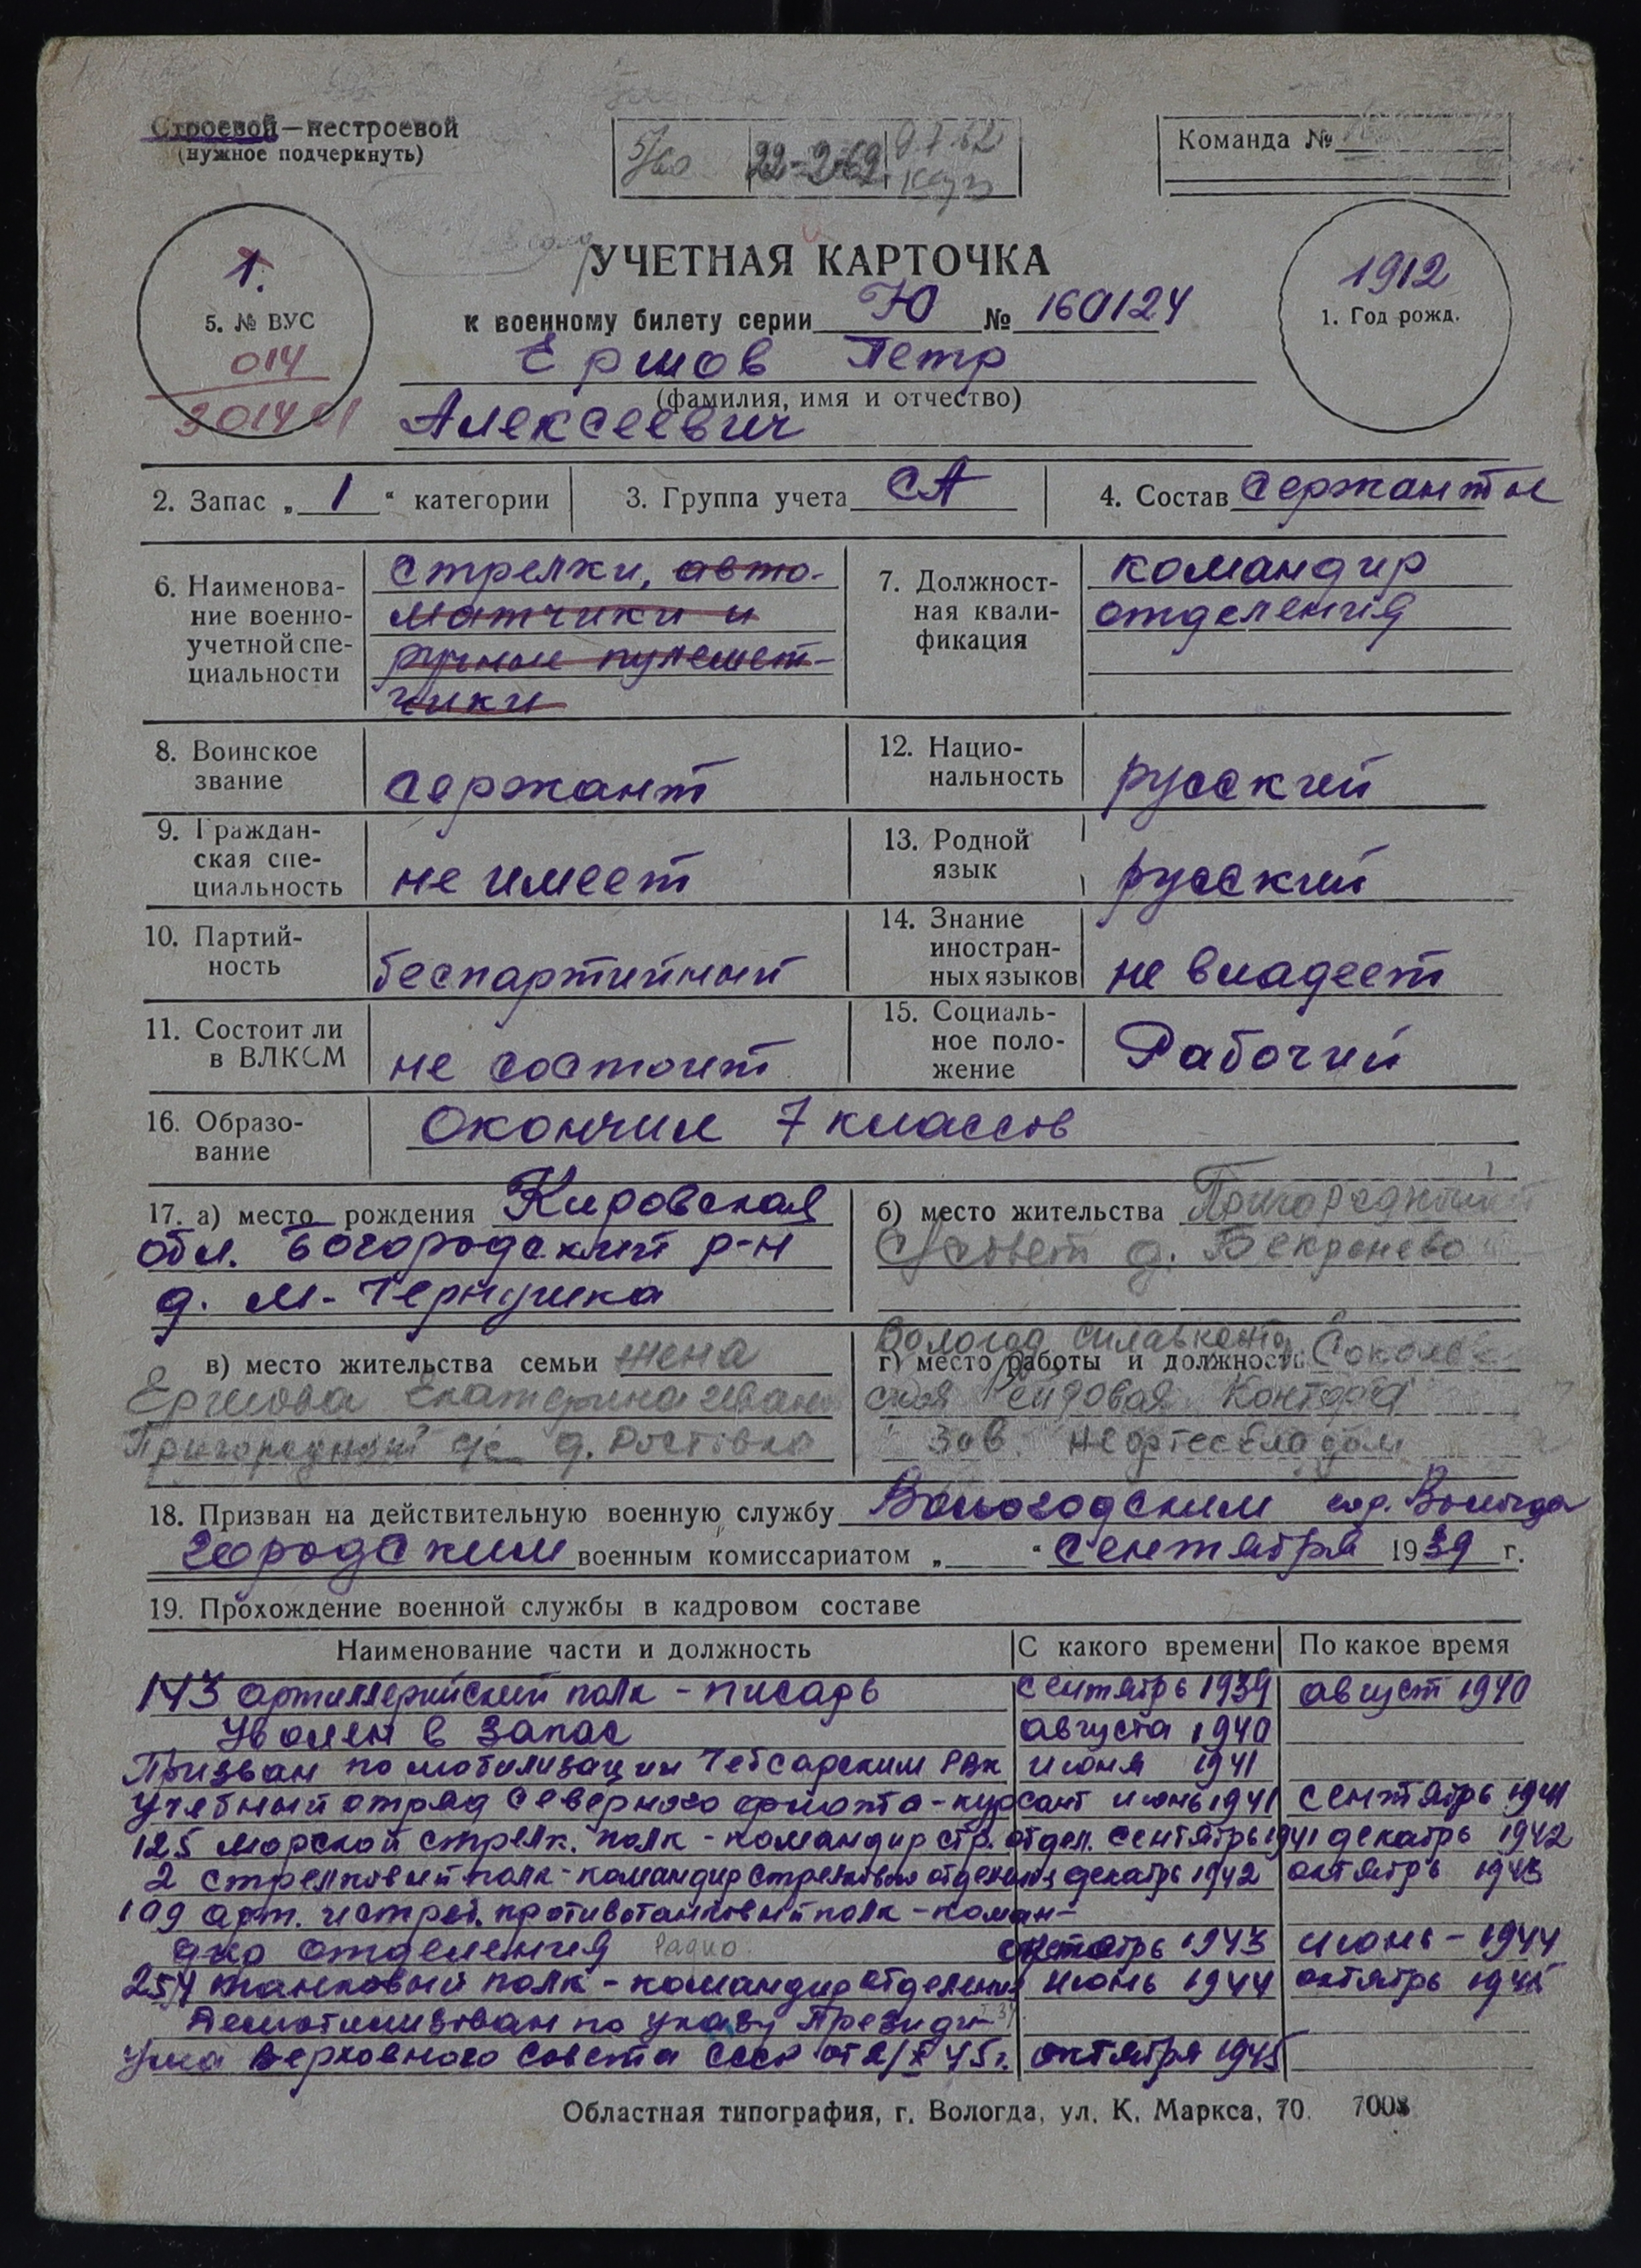 Строевой—нестроевой
(нужное подчеркнуть)
22-2-62
Команда №
1.
5. № ВУС
014
УЧЕТНАЯ КАРТОЧКА
к военному билету серии Ю № 160124
1912
1. Год рожд.
Ершов Петр
(фамилия, имя и отчество)
Алексеевич
2. Запас „ 1 “ категории
3. Группа учета СА
4. Состав сержанты
6. Наименова-
ние военно-
учетной спе-
циальности
стрелки, авто-
матчики и
ручные пулемет-
чики
7. Должност-
ная квали-
фикация
командир
отделения
8. Воинское
звание
сержант
12. Нацио-
нальность
русский
9. Граждан-
ская спе-
циальность
не имеет
13. Родной
язык
русский
10. Партий-
ность
беспартийный
14. Знание
иностран-
ных языков
не владеет
11. Состоит ли
в ВЛКСМ
не состоит
15. Социаль-
ное поло-
жение
Рабочий
16. Образо-
вание
Окончил 7 классов
17. а) место рождения Кировская
обл. Богородский р-н
д. М-Чернушка
б) место жительства Пригородный
с/совет д. Бекренево
в) место жительства семьи жена
Ершова Екатерина Иван
Пригородный с/с д.
Вологод
г) место работы и должность Соколов
ская Рейдовая Контора
Зав. Нефтескладом
18. Призван на действительную военную службу Вологодским гор. Вологда
городским военным комиссариатом „ “ Сентября 1939 г.
19. Прохождение военной службы в кадровом составе
Наименование части и должность С какого времени По какое время
143 артиллерийский полк - писарь сентябрь 1939 август 1940
Уволен в запас августа 1940
Призван по мобилизации Чебсарским РВК июня 1941
Учебный отряд Северного флота - курсант июнь 1941 сентябрь 1941
125 морской стрелк. полк - командир стр. отдел. сентябрь 1941 декабрь 1942
2 стрелковый полк - командир стрелковый отделения декабрь 1942 октябрь 1943
109 арт. истреб. противотанковый полк - коман-
дир отделения Радио октябрь 1943 июнь - 1944
254 танковый полк - командир отделения июнь 1944 октябрь 1945
Демобилизован по указу Президи-
ума Верховного Совета СССР октября 1945
Областная типография, г. Вологда, ул. К. Маркса, 70. 7008